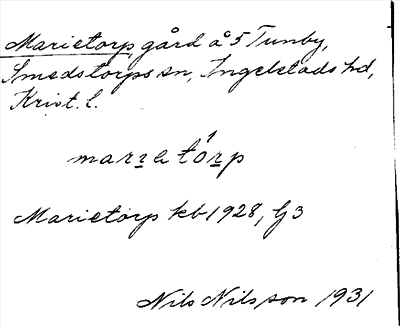 Marietorp, gård å 5 Tunby,
Smedstorps sn, Ingelstads hd,
Krist. l.
Marietorp kb 1928, G3
Nils Nilsson 1931